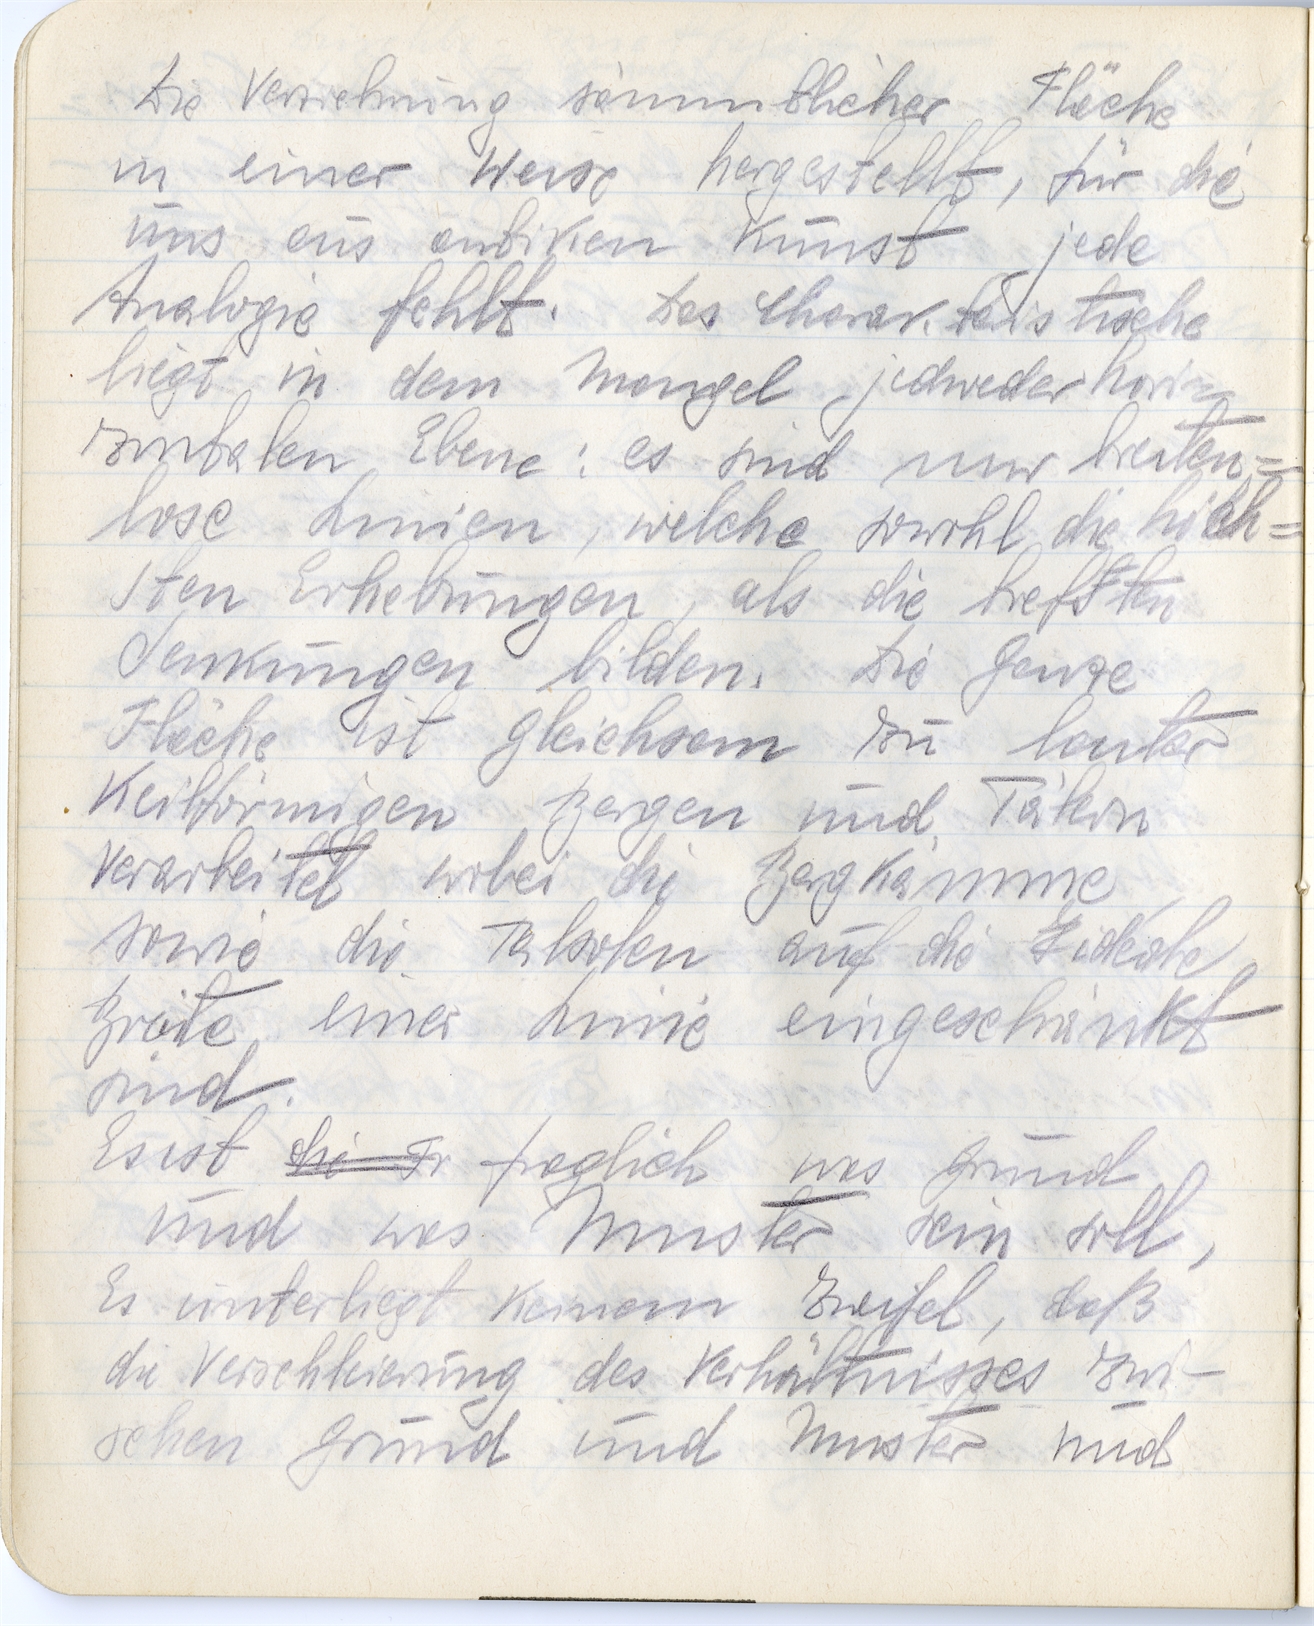 Die Verziehrung sämmtlicher Fläche
in einer Weise hergestellt, für die
uns aus antiken Kunst jede
Analogie fehlt. Das Charakteristische
liegt in dem Mangel jedweder hori-
zontalen Ebene: es sind nur breiten=
lose Linien, welche sowohl die höch=
sten Erhebungen, als die tiefsten
Senkungen bilden. Die ganze
Fläche ist gleichsam zu lauter
Keilförmigen Bergen und Tälern
verarbeitet wobei die Bergkämme
sowie die Talsolen auf die Ideale
Breite einer Linie eingeschränkt
sind.
Es ist die Fr fraglich was Grund
und was Muster sein soll,
Es unterliegt Keinem Zweifel, daß
die Verschleierung des Verhältnisses zwi-
schen Grund und Muster und